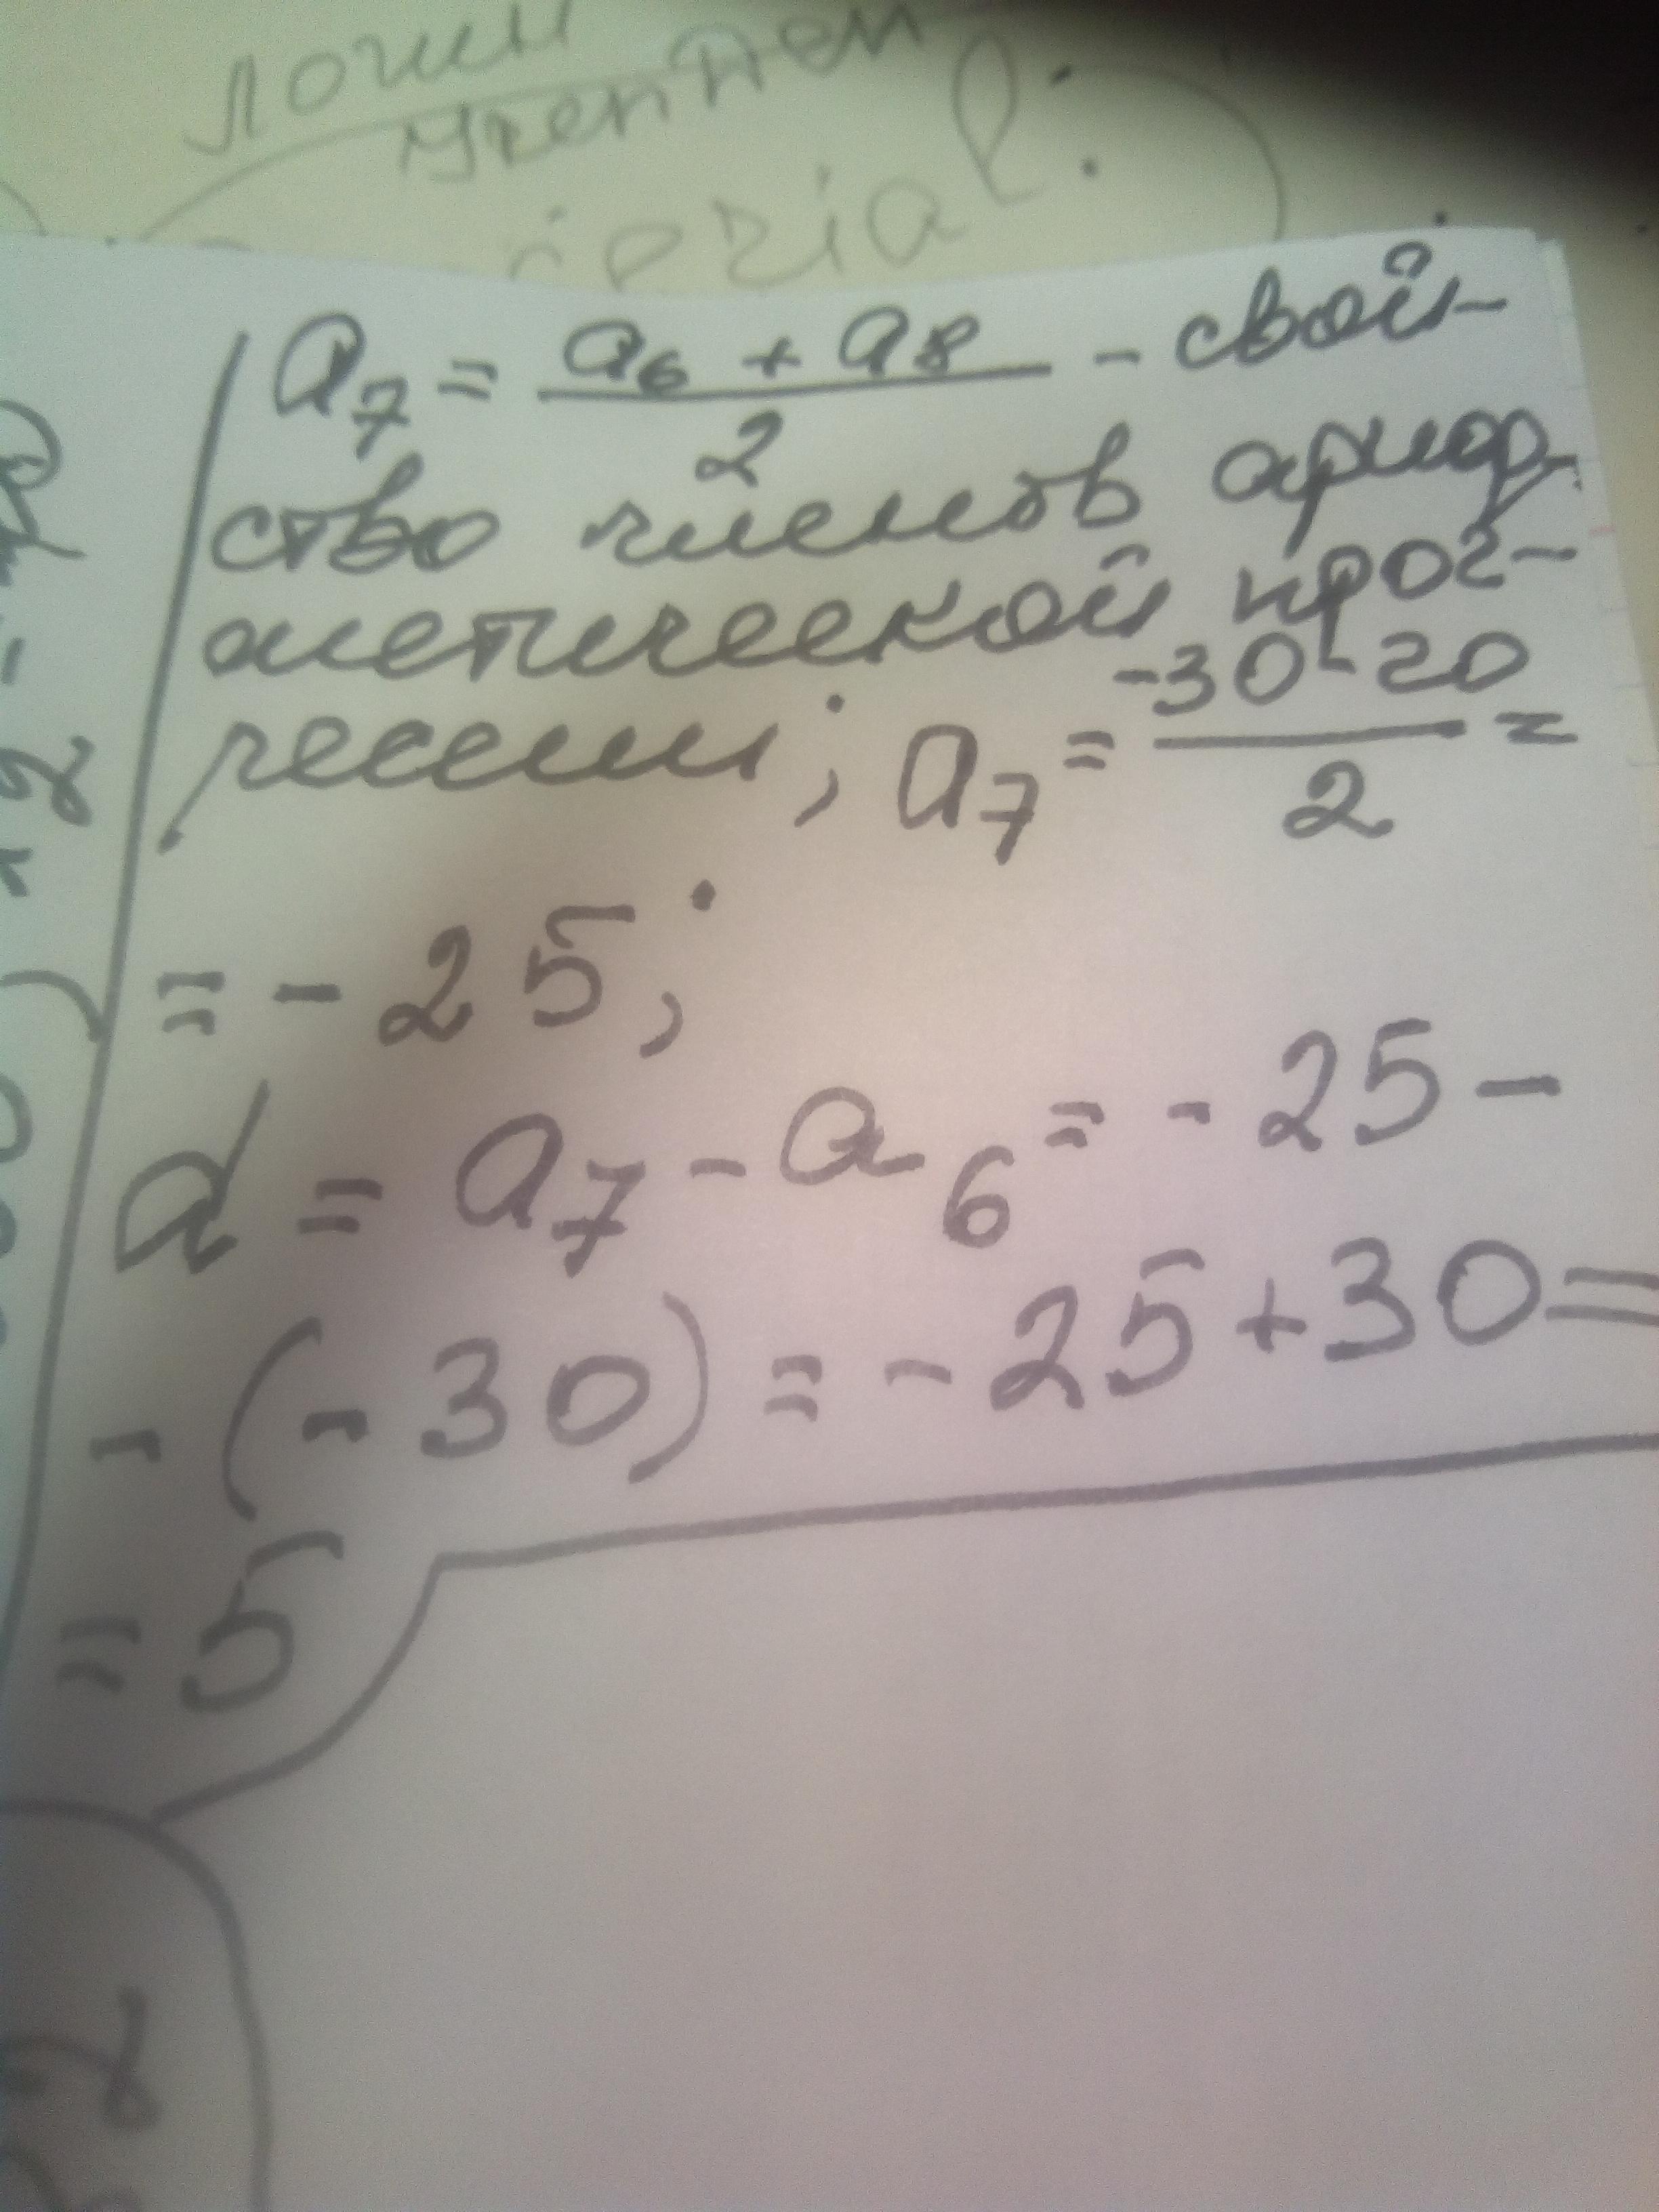 логин
a₇ = (a₆ + a₈)/2 - свой-
ство членов ариф-
метической прог-
рессии; a₇ = (-30-20)/2 =
= - 25;
d = a₇ - a₆ = - 25 -
- (- 30) = - 25 + 30 =
= 5